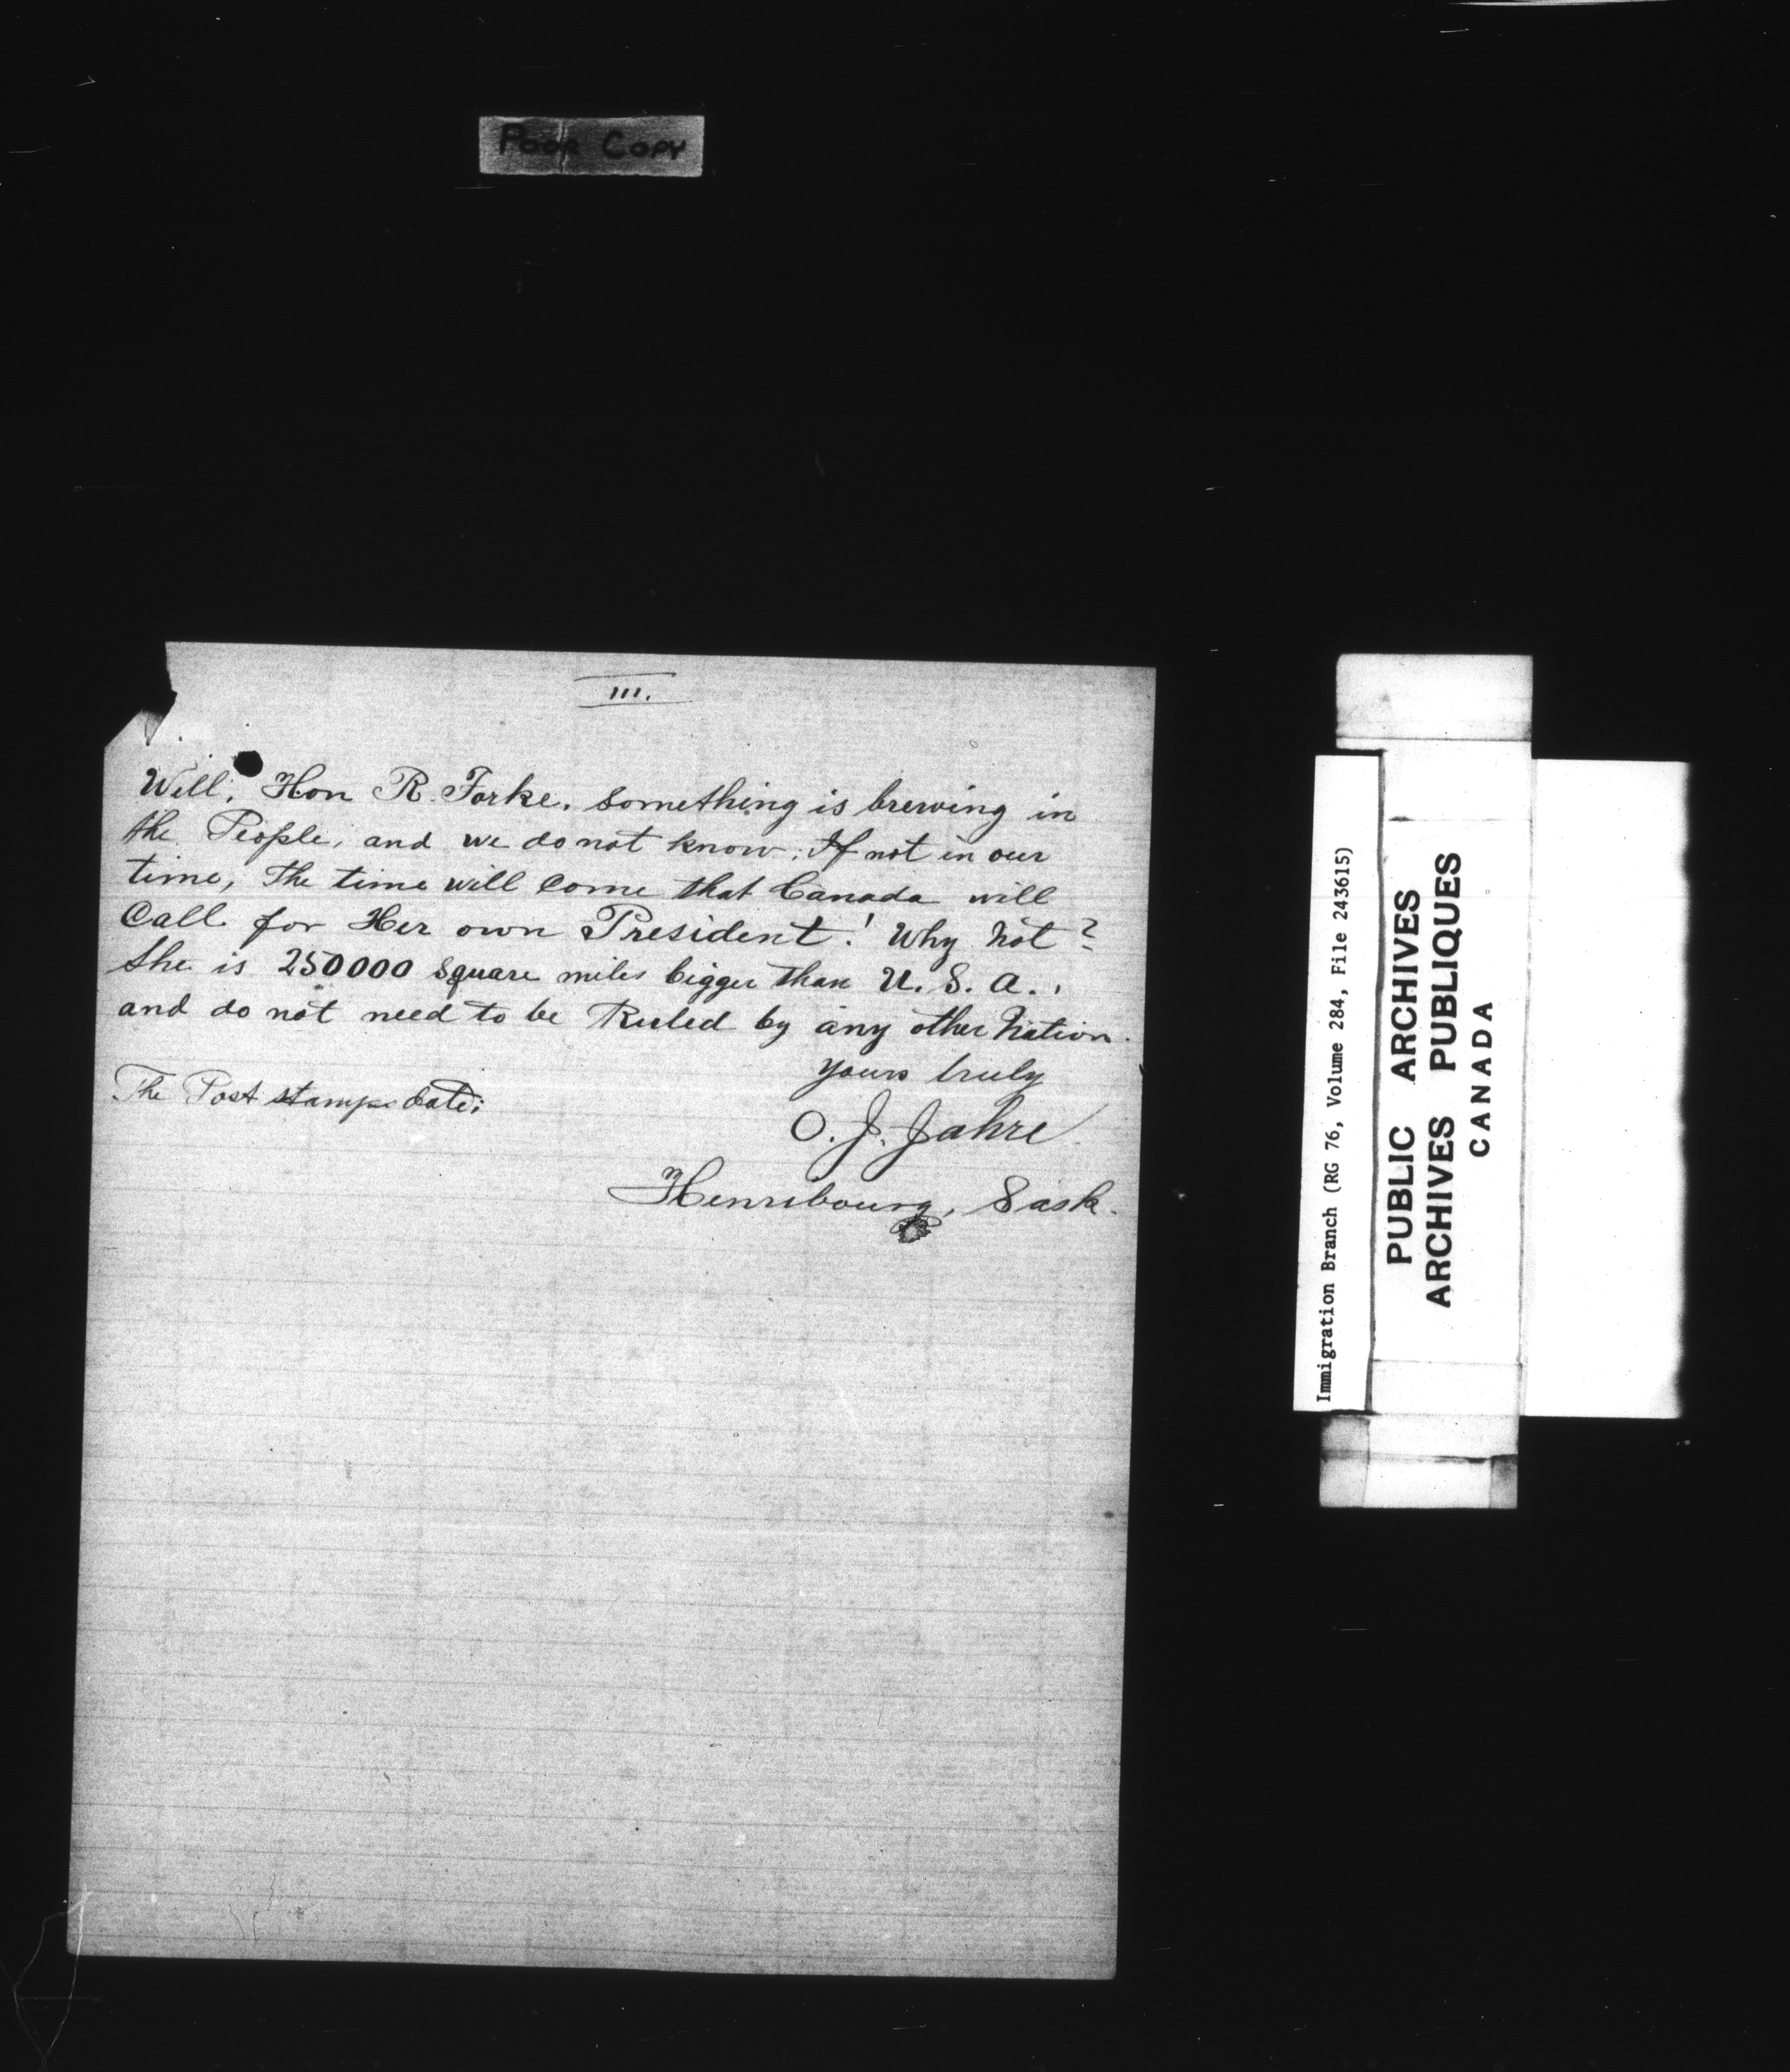 Poor Copy
III.
Will, Hon R. Forke. Something is brewing in
the People, and we do not know; If not in our
time, The time will Come that Canada will
Call for Her own President! Why Not?
She is 250000 Square miles bigger than U. S. A.,
and do not need to be Ruled by any other Nation.
Yours truly
The Post stamps date:
O. J. Jahre
Henribourg, Sask.
Immigration Branch (RG 76, Volume 284, File 243615)
PUBLIC ARCHIVES
ARCHIVES PUBLIQUES
CANADA